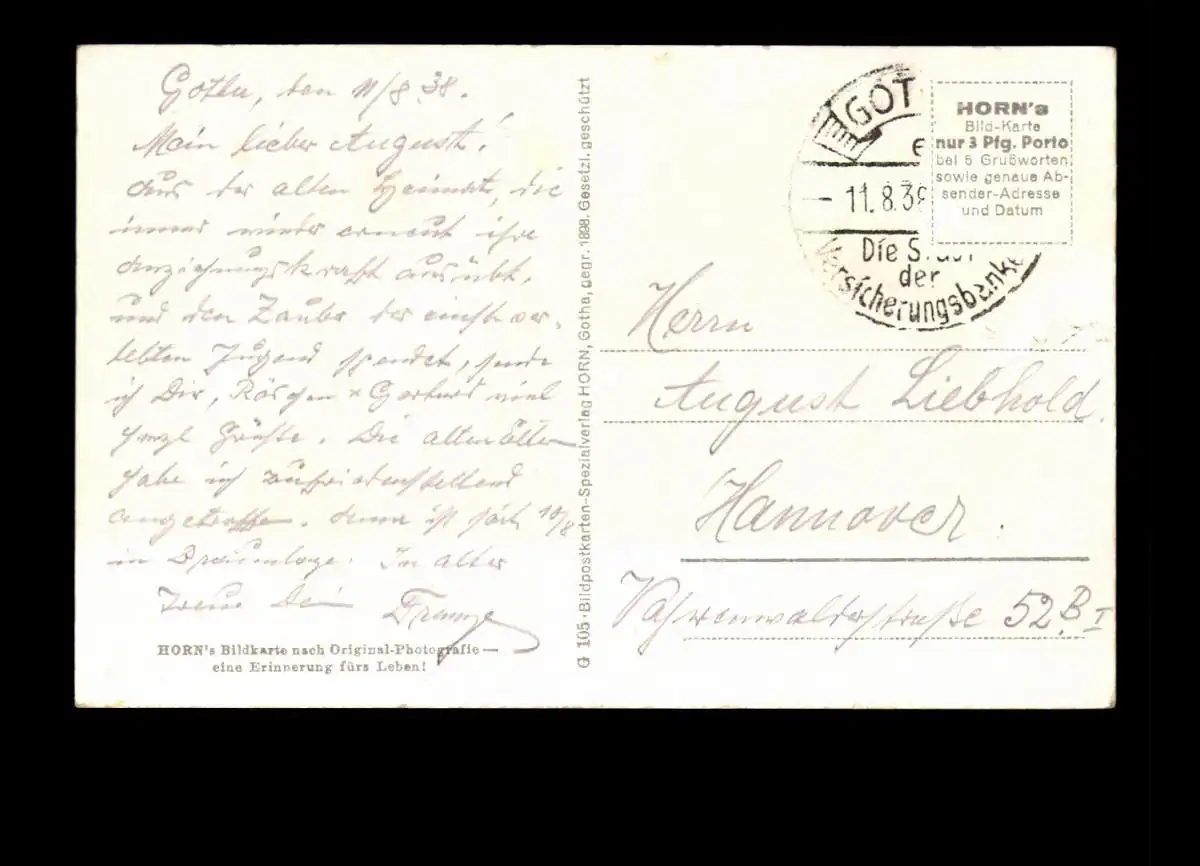 Gotha, den 11/8 38.
Mein lieber August!
Aus der alten Heimat, die
immer wieder erneut ihre
Anziehungskraft ausübt,
und den Zauber der einst ver-
lebten Jugend spendet, sende
ich Dir, Röschen + Gertrud viel
herzl Grüße. Die alten Eltern
habe ich zufriedenstellend
angetroffen. ist seit 10/8
in Braunlage. In alter
Treue Dein
HORN's Bildkarte nach Original-Photografie —
eine Erinnerung fürs Leben!
G 105 · Bildpostkarten-Spezialverlag HORN, Gotha, gegr. 1898. Gesetzl. geschützt
GOT
- 11.8.38
Die S
der
Versicherungsbanken
HORN's
Bild-Karte
nur 3 Pfg. Porto
bei 5 Grußworten
sowie genaue Ab-
sender-Adresse
und Datum
Herrn
August Liebhold
Hannover.
Vahrenwalderstraße 52 B I